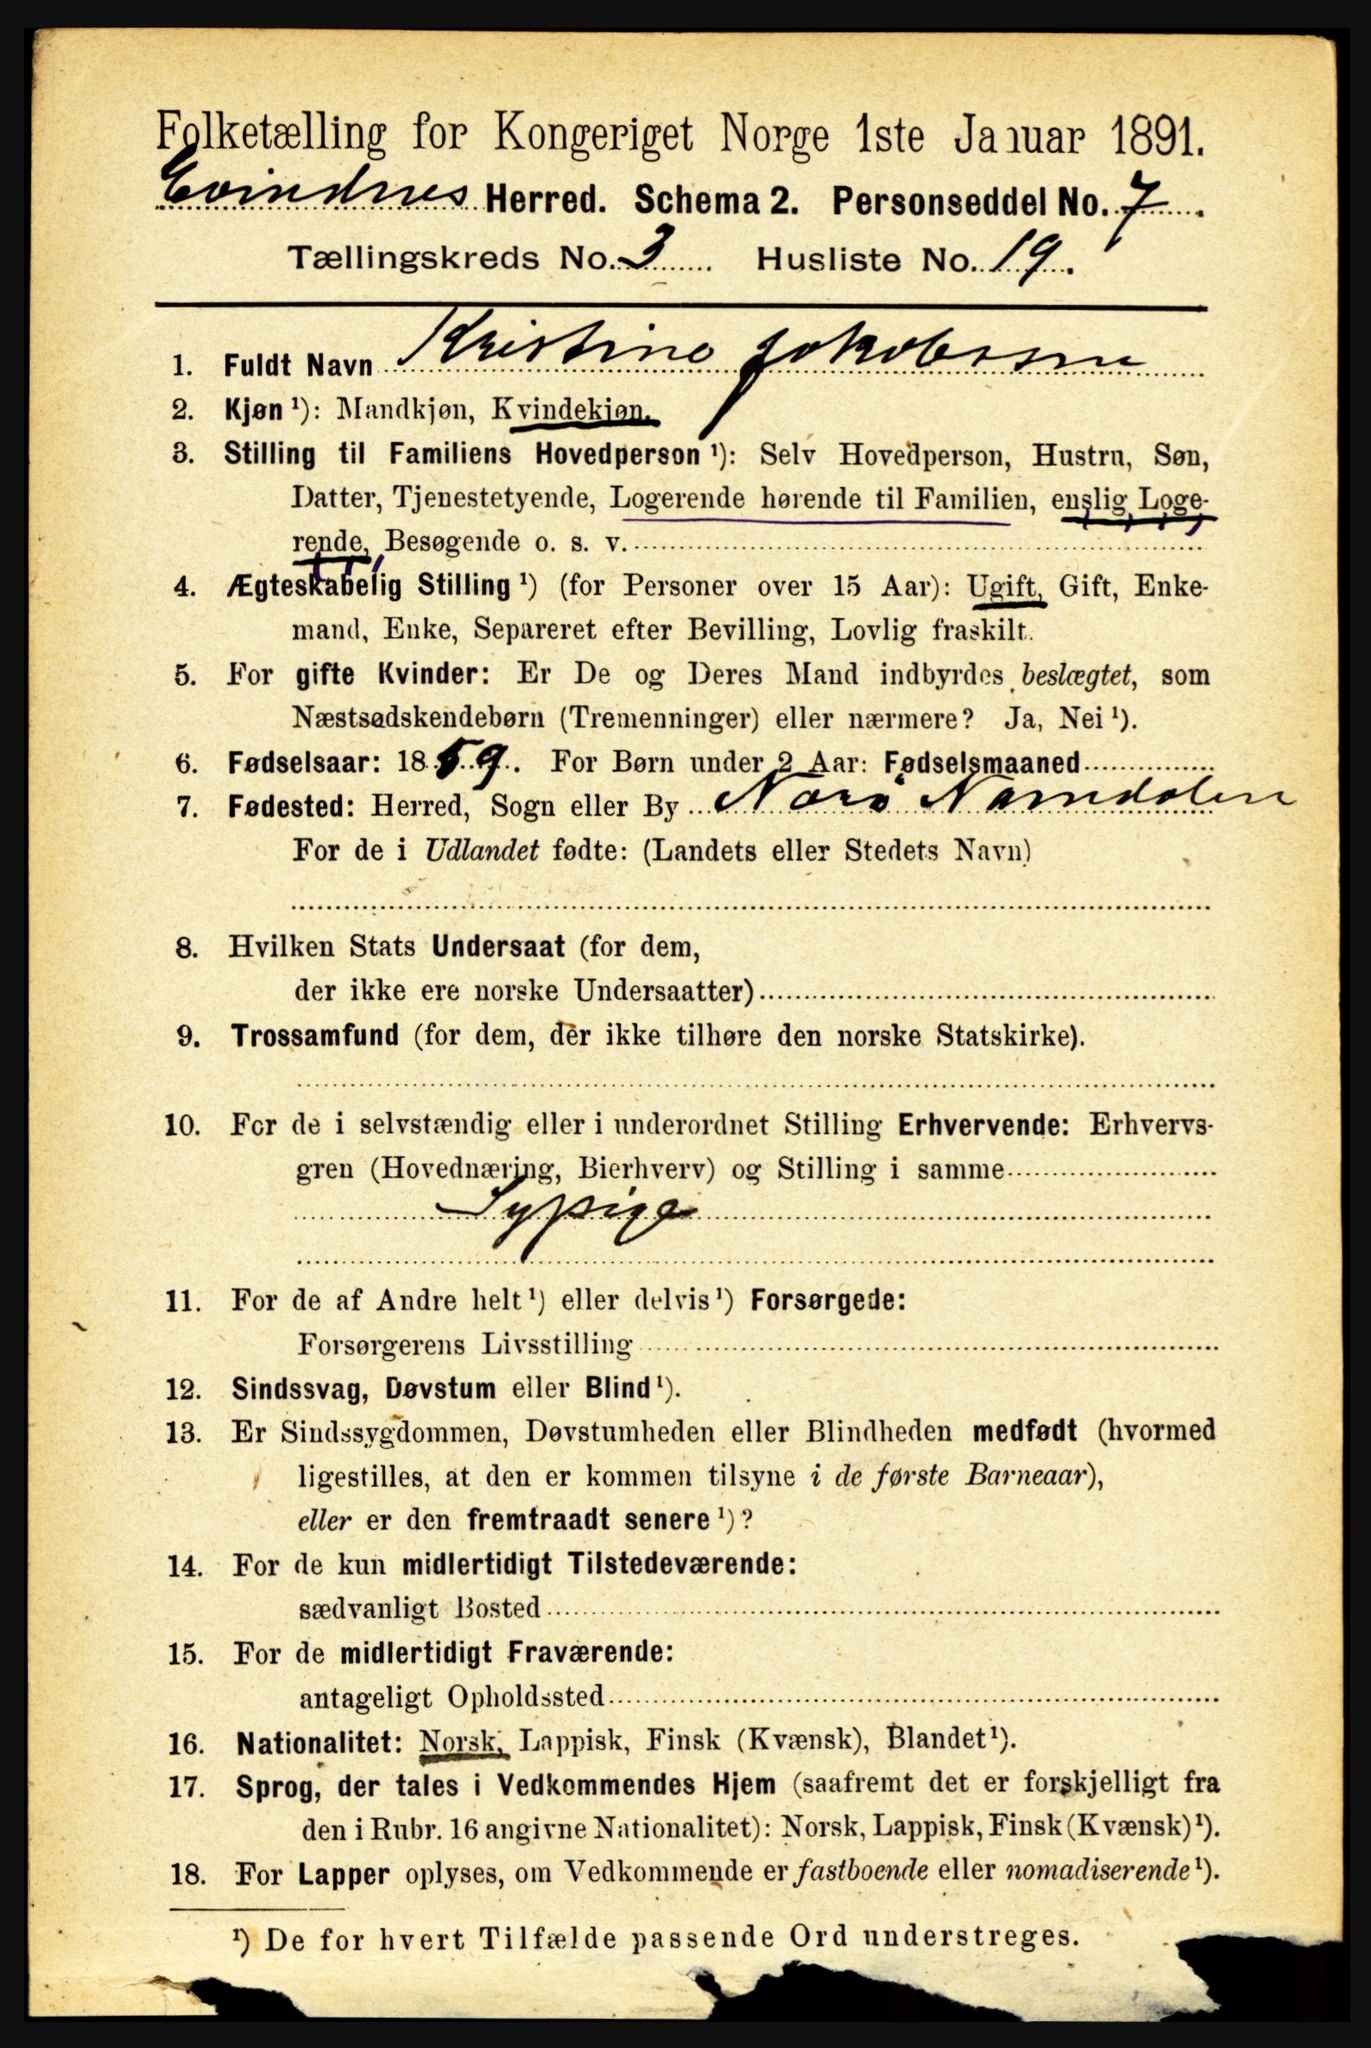 Folketælling for Kongeriget Norge 1ste Januar 1891.
Evindnes Herred. Schema 2. Personseddel No. 7.
Tællingskreds No. 3 Husliste No. 19.
1. Fuldt Navn Kristine Jakobsen
2. Kjøn ¹): Mandkjøn, Kvindekjøn.
3. Stilling til Familiens Hovedperson ¹): Selv Hovedperson, Hustru, Søn,
Datter, Tjenestetyende, Logerende hørende til Familien, enslig Loge-
rende, Besøgende o. s. v.
4. Ægteskabelig Stilling ¹) (for Personer over 15 Aar): Ugift, Gift, Enke-
mand, Enke, Separeret efter Bevilling, Lovlig fraskilt.
5. For gifte Kvinder: Er De og Deres Mand indbyrdes beslægtet, som
Næstsødskendebørn (Tremenninger) eller nærmere? Ja, Nei ¹).
6. Fødselsaar: 1859. For Børn under 2 Aar: Fødselsmaaned
7. Fødested: Herred, Sogn eller By Nærø Namdalen
For de i Udlandet fødte: (Landets eller Stedets Navn)
8. Hvilken Stats Undersaat (for dem,
der ikke ere norske Undersaatter)
9. Trossamfund (for dem, der ikke tilhøre den norske Statskirke).
10. For de i selvstændig eller i underordnet Stilling Erhvervende: Erhvervs-
gren (Hovednæring, Bierhverv) og Stilling i samme
Sypige
11. For de af Andre helt ¹) eller delvis ¹) Forsørgede:
Forsørgerens Livsstilling
12. Sindssvag, Døvstum eller Blind ¹).
13. Er Sindssygdommen, Døvstumheden eller Blindheden medfødt (hvormed
ligestilles, at den er kommen tilsyne i de første Barneaar),
eller er den fremtraadt senere ¹)?
14. For de kun midlertidigt Tilstedeværende:
sædvanligt Bosted
15. For de midlertidigt Fraværende:
antageligt Opholdssted
16. Nationalitet: Norsk, Lappisk, Finsk (Kvænsk), Blandet ¹).
17. Sprog, der tales i Vedkommendes Hjem (saafremt det er forskjelligt fra
den i Rubr. 16 angivne Nationalitet): Norsk, Lappisk, Finsk (Kvænsk) ¹).
18. For Lapper oplyses, om Vedkommende er fastboende eller nomadiserende ¹).
¹) De for hvert Tilfælde passende Ord understreges.